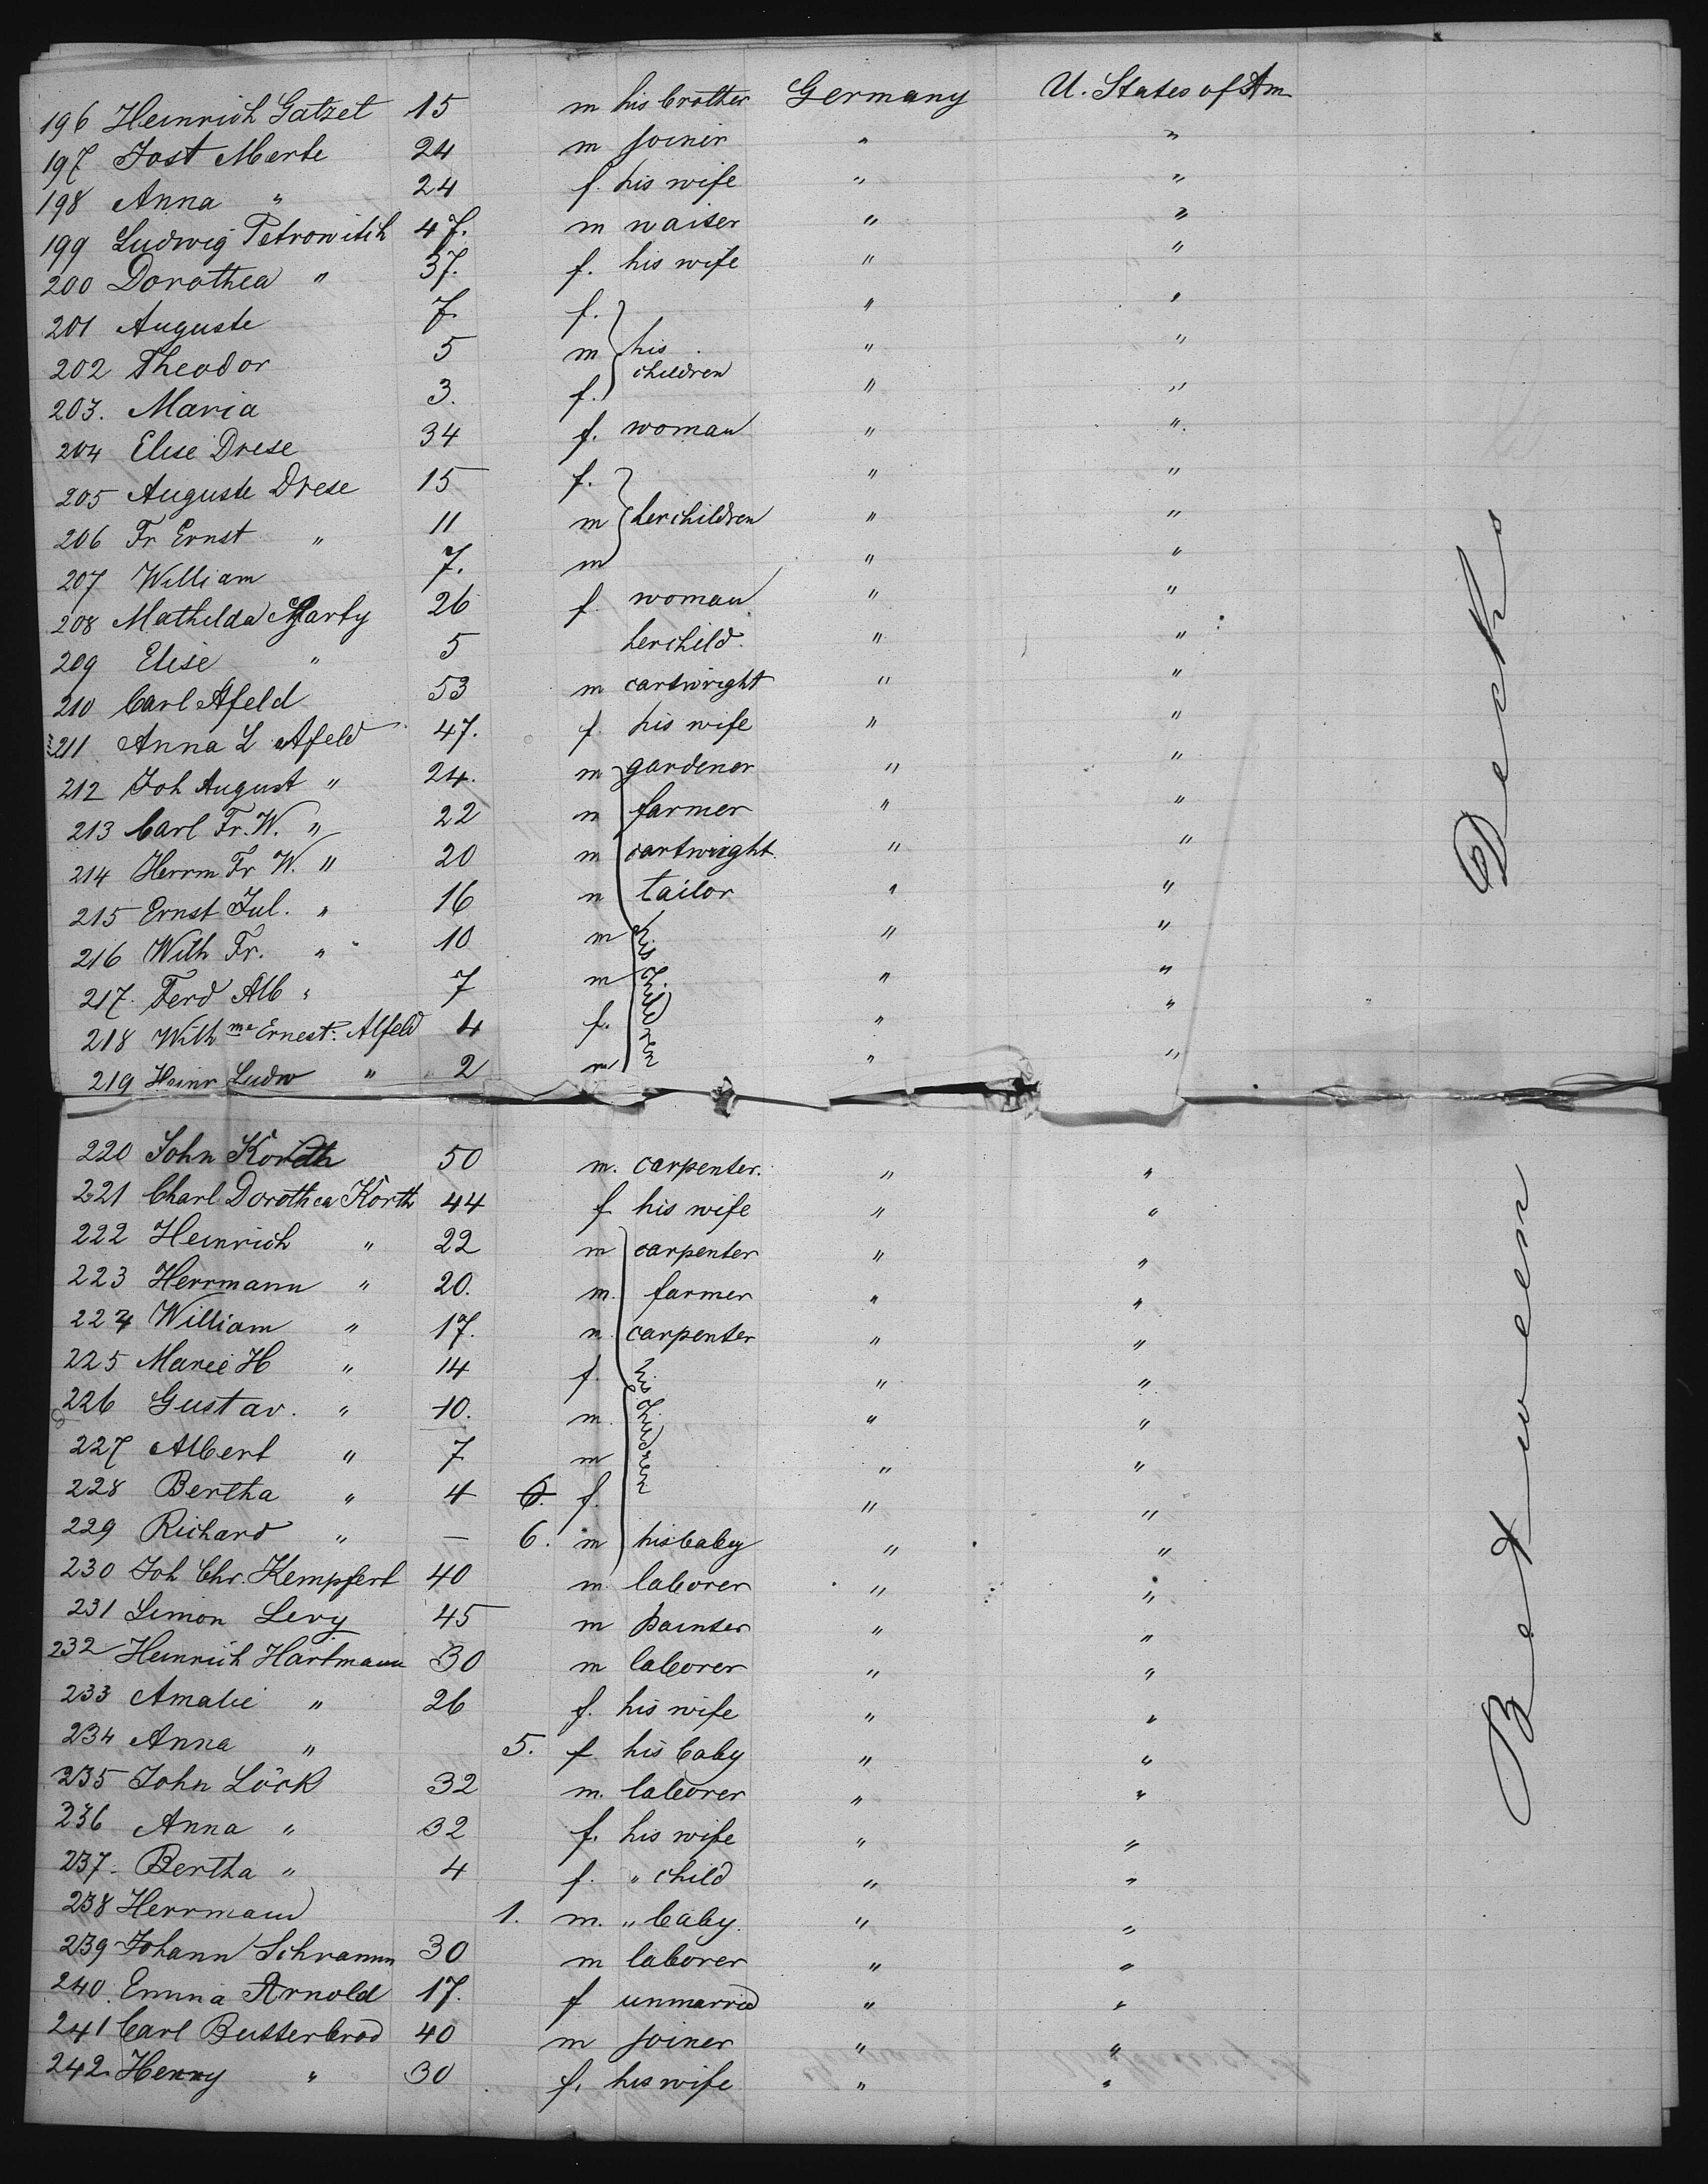 196 Heinrich Gatzet 15 m his brother Germany U. States of Am
197 Jost Merte 24 m joiner " "
198 Anna " 24 f. his wife " "
199 Ludwig Petrowitch 47. m waiter " "
200 Dorothea " 37. f. his wife " "
201 Auguste 7. f. " "
202 Theodor 5 m his children " "
203. Maria 3. f. " "
204 Elise Drese 34 f. woman " "
205 Auguste Drese 15 f. " "
206 Fr Ernst " 11 m her children " "
207 William 7. m " "
208 Mathilda 26 f. woman " "
209 Elise " 5 her child. " "
210 Carl Afeld 53 m cartwright " "
211 Anna L Afeld 47. f. his wife " "
212 Joh August " 24. m gardener " "
213 Carl Fr. W. " 22 m farmer " "
214 Herrm Fr W. " 20 m cartwright. " "
215 Ernst Jul. " 16 m tailor " "
216 Wilh Fr. " 10 m his children " "
217. Ferd Alb " 7 m " "
218 Wilh me Ernest: Alfeld 4 f. " "
219 Heinr Ludw " 2 m " "
220 John Korth 50 m. carpenter. " "
221 Charl Dorothea Korth 44 f his wife " "
222 Heinrich " 22 m carpenter " "
223 Herrmann " 20. m. farmer " "
224 William " 17. m. carpenter " "
225 Marie H " 14 f. his children " "
226 Gustav. " 10. m. " "
227 Albert " 7 m " "
228 Bertha " 4 6. f. " "
229 Richard " — 6. m his baby " "
230 Joh Chr. Kempfert 40 m. laborer " "
231 Simon Levy 45 m painter " "
232 Heinrich Hartmann 30 m laborer " "
233 Amalie " 26 f. his wife " "
234 Anna " 5. f his baby " "
235 John Löck 32 m. laborer " "
236 Anna " 32 f. his wife " "
237. Bertha " 4 f. " child " "
238 Herrmann 1. m. " baby. " "
239 Johann Schramm 30 m laborer " "
240. Emma Arnold 17. f unmarried " "
241 Carl Butterbrod 40 m joiner " "
242. Henny " 30 f. his wife " "
Between Decks